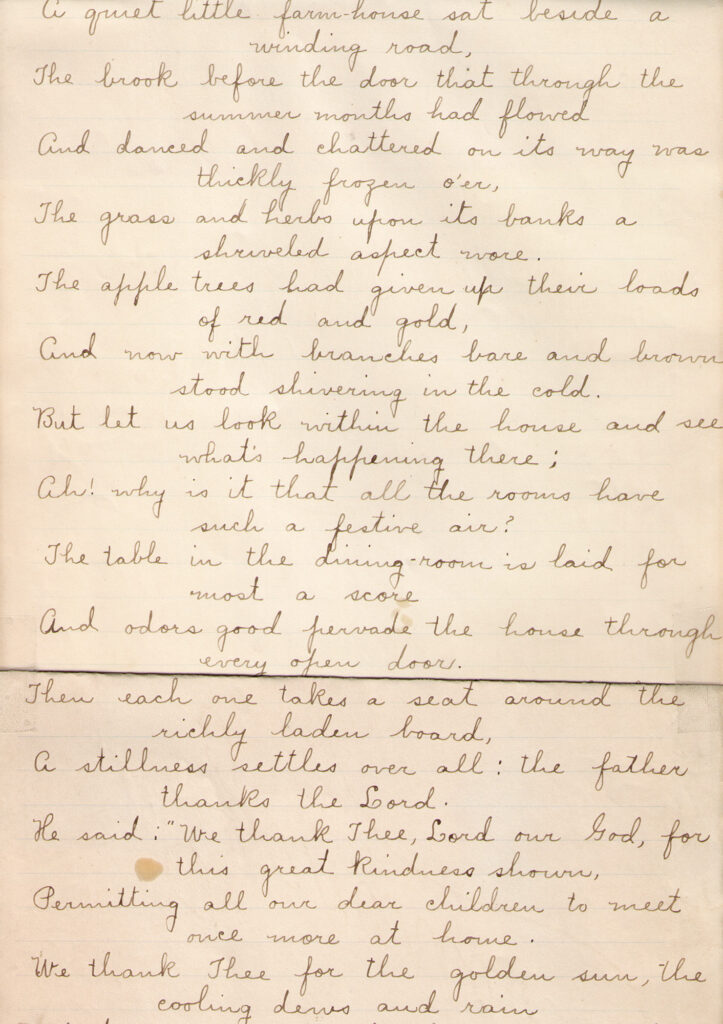 A quiet little farm-house sat beside a
winding road,
The brook before the door that through the
summer months had flowed
And danced and chattered on its way was
thickly frozen o'er,
The grass and herbs upon its banks a
shriveled aspect wore.
The apple trees had given up their loads
of red and gold,
And now with branches bare and brown
stood shivering in the cold.
But let us look within the house and see
what's happening there;
Ah! why is it that all the rooms have
such a festive air?
The table in the dining-room is laid for
most a score
And odors good pervade the house through
every open door.
Then each one takes a seat around the
richly laden board,
A stillness settles over all: the father
thanks the Lord.
He said: "We thank Thee, Lord our God, for
this great kindness shown,
Permitting all our dear children to meet
once more at home.
We thank Thee for the golden sun, the
cooling dews and rain